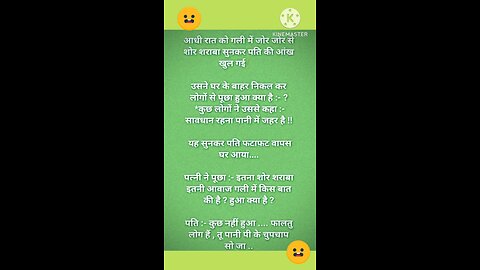 KINEMASTER
आधी रात को गली में जोर जोर से
शोर शराबा सुनकर पति की आंख
खुल गई
उसने घर के बाहर निकल कर
लोगों से पूछा हुआ क्या है :- ?
*कुछ लोगों ने उससे कहा :-
सावधान रहना पानी में जहर है !!
यह सुनकर पति फटाफट वापस
घर आया....
पत्नी ने पूछा :- इतना शोर शराबा
इतनी आवाज गली में किस बात
की है ? हुआ क्या है ?
पति :- कुछ नहीं हुआ .... फालतु
लोग हैं , तू पानी पी के चुपचाप
सो जा ..